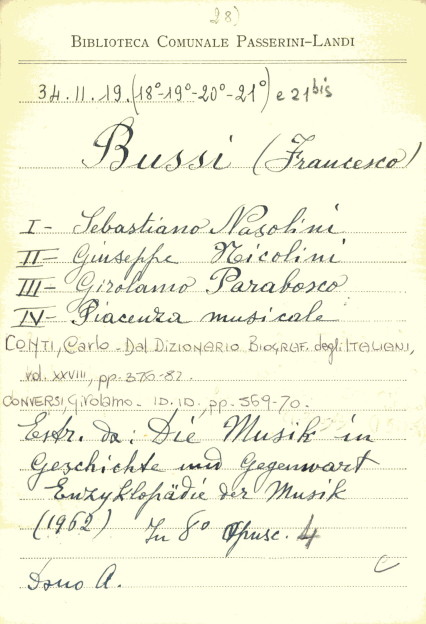 28)
BIBLIOTECA COMUNALE PASSERINI-LANDI
34.II.19.(18°-19°-20°-21°) e 21bis
Bussi (Francesco)
I - Sebastiano Nasolini
II - Giuseppe Nicolini
III - Girolamo Parabosco
IV - Piacenza musicale
CONTI, Carlo - Dal DIZIONARIO BIOGRAF. degli ITALIANI,
vol. XXVIII, pp. 370-82.
CONVERSI, Girolamo - ID. ID., pp. 569-70.
Estr. da: Die Musik in
Geschichte und Gegenwart
Enzyklopädie der Musik
(1962) In 8° Opusc. 4
Dono A. C